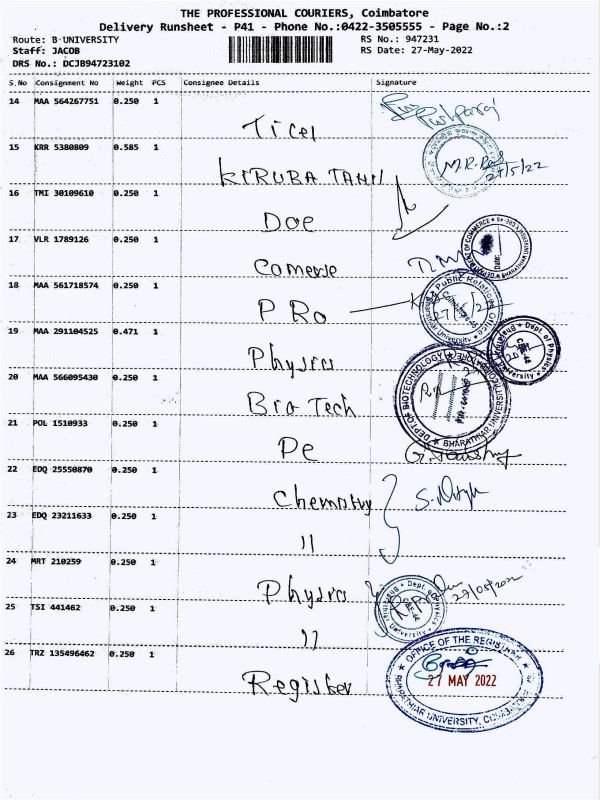 THE PROFESSIONAL COURIERS, Coimbatore
Delivery Runsheet - P41 - Phone No.:0422-3505555 - Page No.:2
Route: B UNIVERSITY RS No.: 947231
Staff: JACOB RS Date: 27-May-2022
DRS No.: DCJB94723102
S.No Consignment No Weight PCS Consignee Details Signature
14 MAA 564267751 0.250 1
Ticel
15 KRR 5380809 0.585 1
KIRUBA TAMIL
M.R. 27/5/22
16 TMI 30109610 0.250 1
DOE
17 VLR 1789126 0.250 1
Comerse
18 MAA 561718574 0.250 1
PRO
Public Relations Office
Bharathiar University
19 MAA 291104525 0.471 1
Physics
Dept. of Physics
20 MAA 566095430 0.250 1
Bio Tech
DEPT OF BIOTECHNOLOGY
BHARATHIAR UNIVERSITY
21 POL 1510933 0.250 1
Pe
22 EDQ 25550870 0.250 1
Chemistry
23 EDQ 23211633 0.250 1
"
24 MRT 210259 0.250 1
Physics
25 TSI 441462 0.250 1
"
26 TRZ 135496462 0.250 1
Register
OFFICE OF THE REGISTRAR
27 MAY 2022
BHARATHIAR UNIVERSITY,